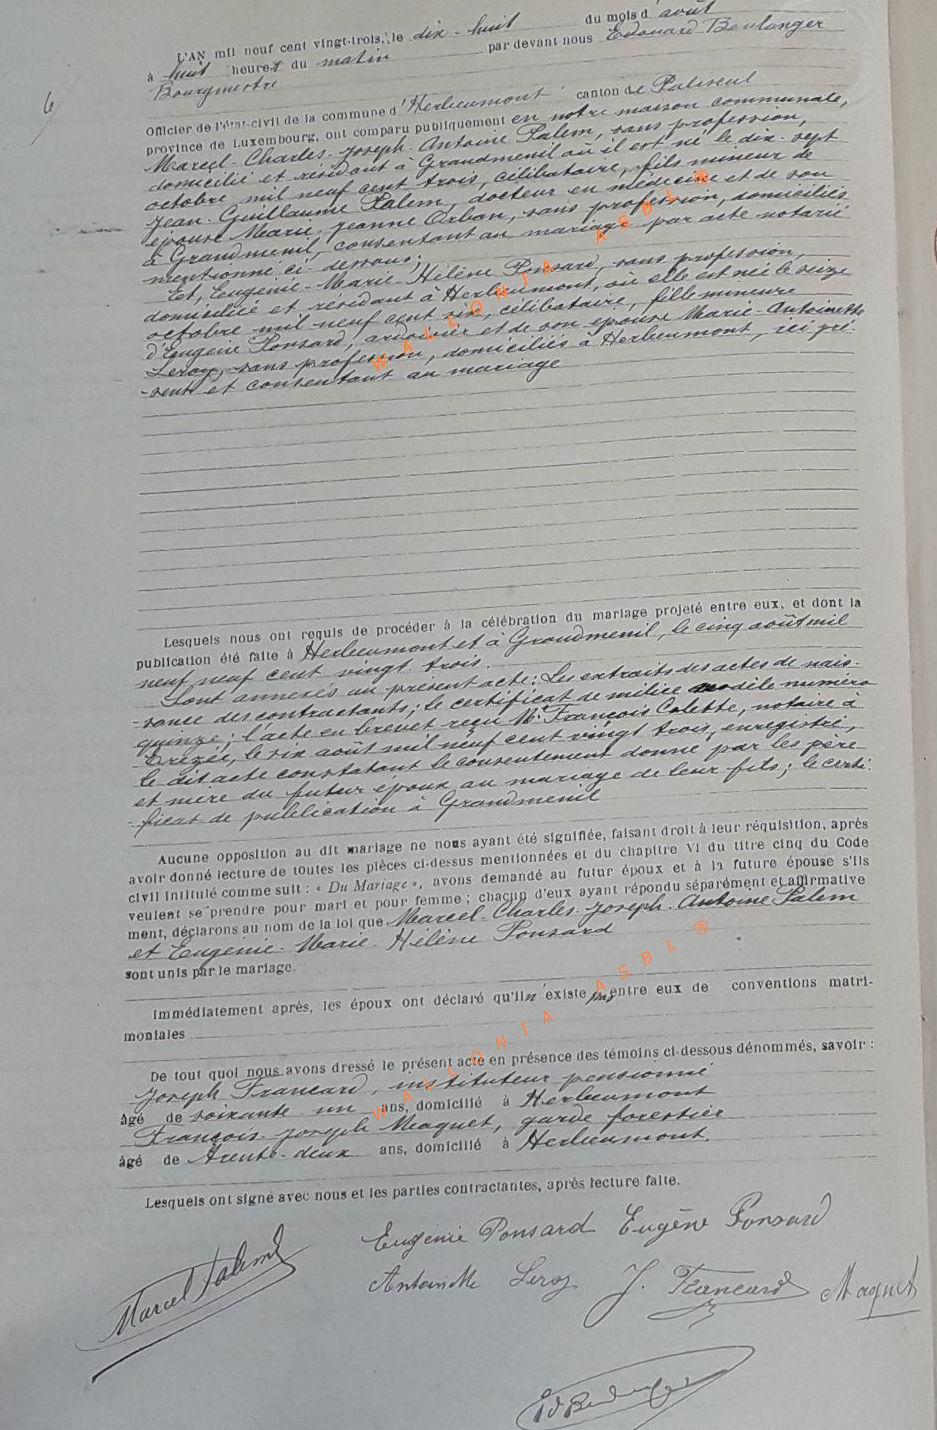 L'AN mil neuf cent vingt-trois, le dix-huit du mois d'août
à huit heures du matin par devant nous Edouard Boulanger
Bourgmestre
6
Officier de l'état-civil de la commune d'Herbeumont canton de Paliseul
province de Luxembourg, ont comparu publiquement en notre maison communale,
Marcel-Charles-Joseph-Antoine Salem, sans profession,
domicilié et résidant à Grandmenil où il est né le dix-sept
octobre mil neuf cent trois, célibataire, fils mineur de
Jean-Guillaume Salem, docteur en médecine et de son
épouse Marie-Jeanne Orban, sans profession, domiciliés
à Grandmenil, consentant au mariage par acte notarié
mentionné ci-dessous;
Et, Eugénie-Marie-Hélène Ponsard, sans profession,
domiciliée et résidant à Herbeumont, où elle est née le seize
octobre mil neuf cent six, célibataire, fille mineure
d'Eugène Ponsard, ardoisier et de son épouse Marie-Antoinette
Leroy, sans profession, domiciliés à Herbeumont, ici pré-
-sents et consentant au mariage
WALLONIA ASBL ®
Lesquels nous ont requis de procéder à la célébration du mariage projeté entre eux, et dont la
publication été faite à Herbeumont et à Grandmenil, le cinq août mil
neuf cent vingt trois.
Sont annexés au présent acte: Les extraits des actes de nais-
-sance des contractants; le certificat de milice modèle numéro
quinze; l'acte en brevet reçu Mr François Colette, notaire à
Erezée, le six août mil neuf cent vingt trois, enregistré,
le dit acte constatant le consentement donné par les père
et mère du futur époux au mariage de leur fils; le certi-
-ficat de publication à Grandmenil
Aucune opposition au dit mariage ne nous ayant été signifiée, faisant droit à leur réquisition, après
avoir donné lecture de toutes les pièces ci-dessus mentionnées et du chapitre VI du titre cinq du Code
civil intitulé comme suit : « Du Mariage », avons demandé au futur époux et à la future épouse s'ils
veulent se prendre pour mari et pour femme ; chacun d'eux ayant répondu séparément et affirmative
ment, déclarons au nom de la loi que Marcel-Charles-Joseph-Antoine Salem
et Eugénie-Marie-Hélène Ponsard
sont unis par le mariage.
Immédiatement après, les époux ont déclaré qu'il n'existe pas entre eux de conventions matri-
moniales
WALLONIA ASBL ®
De tout quoi nous avons dressé le présent acte en présence des témoins ci-dessous dénommés, savoir :
Joseph Francard, instituteur pensionné
âgé de soixante un ans, domicilié à Herbeumont
François-Joseph Maquet, garde forestier
âgé de trente-deux ans, domicilié à Herbeumont.
Lesquels ont signé avec nous et les parties contractantes, après lecture faite.
Eugénie Ponsard Eugène Ponsard
Marcel Salem
Antoinette Leroy J. Francard Maquet
Ed Boulanger